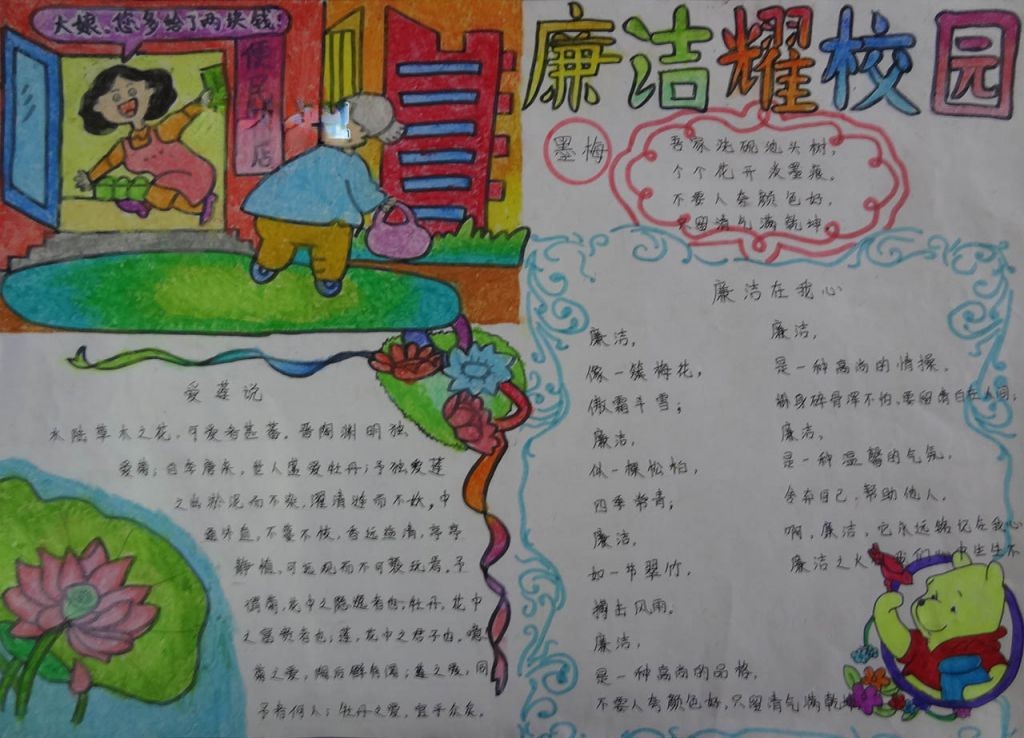 大娘、您多给了两块钱!
便民小店
廉洁耀校园
墨梅
吾家洗砚池头树，
个个花开淡墨痕。
不要人夸颜色好，
只留清气满乾坤。
爱莲说
水陆草木之花，可爱者甚蕃。晋陶渊明独
爱菊；自李唐来，世人盛爱牡丹；予独爱莲
之出淤泥而不染，濯清涟而不妖，中
通外直，不蔓不枝，香远益清，亭亭
静植，可远观而不可亵玩焉。予
谓菊，花中之隐逸者也；牡丹，花中
之富贵者也；莲，花中之君子也。噫，
菊之爱，陶后鲜有闻；莲之爱，同
予者何人；牡丹之爱，宜乎众矣。
廉洁在我心
廉洁，
像一簇梅花，
傲霜斗雪；
廉洁，
似一棵松柏，
四季常青；
廉洁，
如一节翠竹，
搏击风雨。
廉洁，
是一种高尚的品格，
不要人夸颜色好，只留清气满乾坤
廉洁，
是一种高尚的情操，
粉身碎骨浑不怕，要留清白在人间；
廉洁，
是一种温馨的气氛，
舍弃自己，帮助他人。
啊，廉洁，它永远铭记在我心
廉洁之火 我们心中生生不